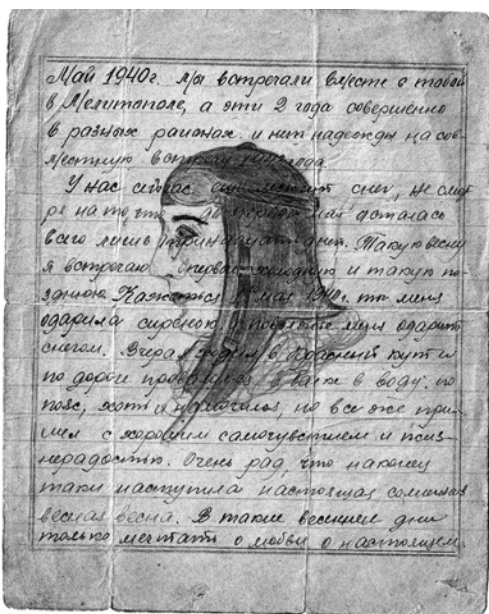 Май 1940г. мы встречали вместе с тобой
в Мелитополе, а эти 2 года совершенно
в разных районах и нет надежды на сов-
местную встречу 1942 года
У нас сейчас еще лежит снег, не смот
ря на то, что до первого мая осталась
всего лишь тринадцать дней. Такую весну
я встречаю впервые холодную и такую по-
зднюю. Кажется 1 мая 1940г. ты меня
одарила сиренью, а меня одарит
снегом. Вчера ходил в Красный кут и
по дороге провалился в балке в воду. по
пояс, хоть и намочился, но все же при-
шел с хорошим самочувствием и жиз-
нерадостью. Очень рад, что наконец
таки наступила настоящая солнечная
весная весна. В такие весенние дни
только мечтать о любви о настоящем.